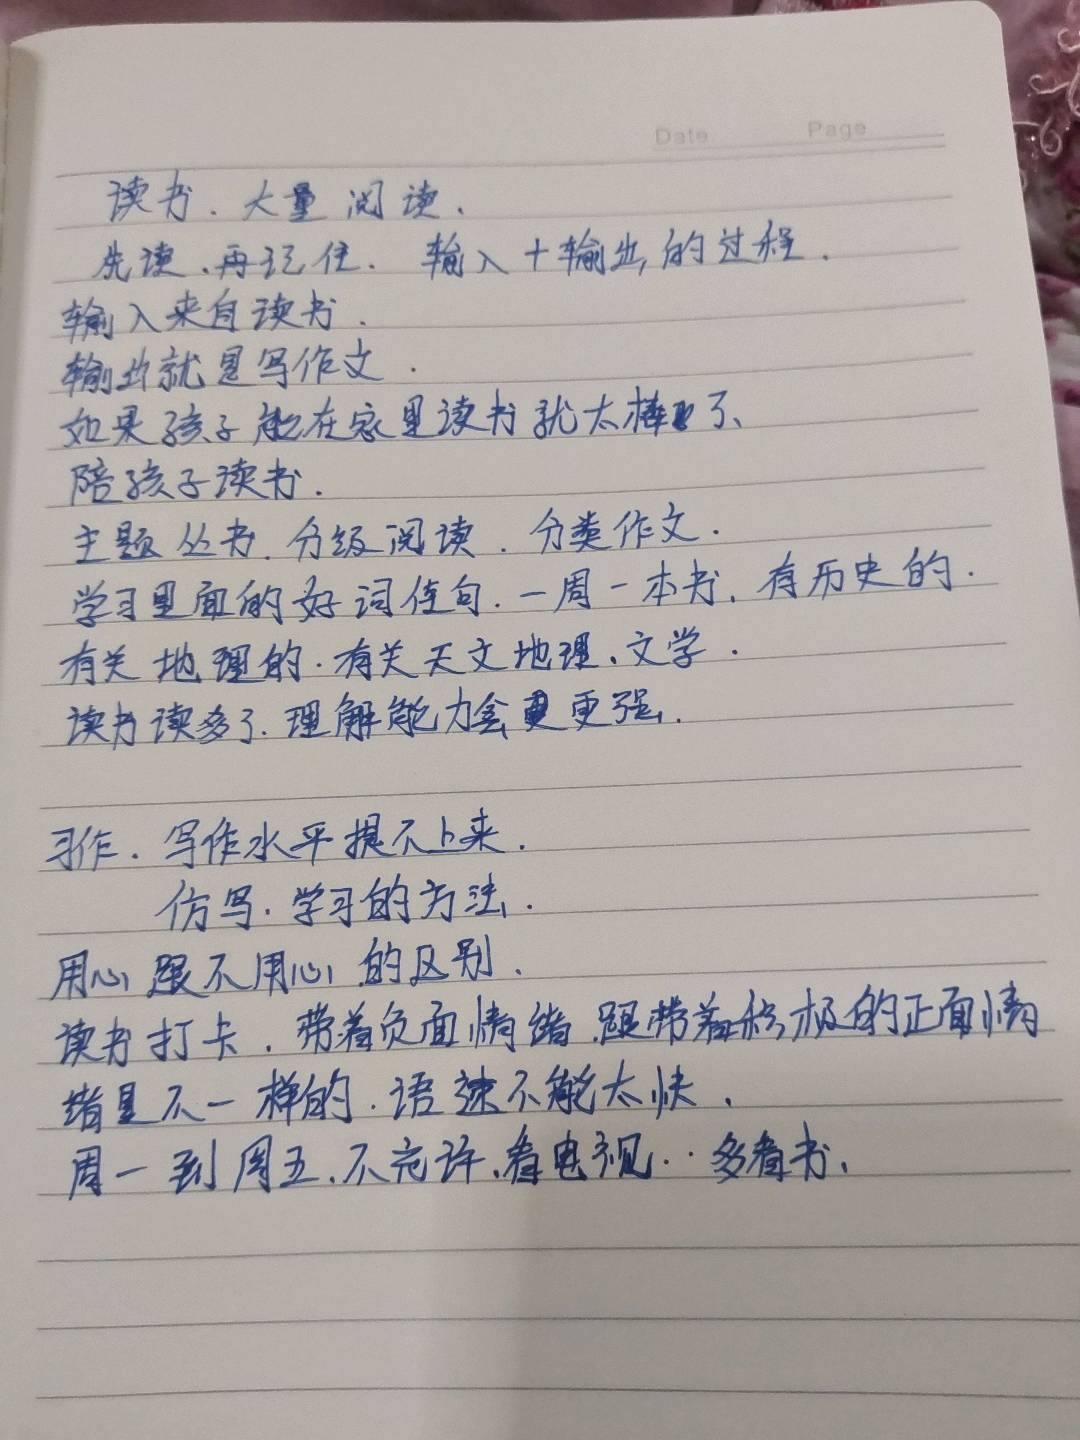 Date Page
读书. 大量阅读.
先读、再记住. 输入+输出的过程.
输入来自读书.
输出就是写作文.
如果孩子能在家里读书就太棒了、
陪孩子读书.
主题丛书. 分级阅读. 分类作文.
学习里面的好词佳句. 一周一本书. 有历史的.
有关地理的. 有关天文地理、文学.
读书读多了. 理解能力会更强.
习作. 写作水平提不上来.
仿写. 学习的方法.
用心跟不用心的区别.
读书打卡. 带着负面情绪.跟带着积极的正面情
绪是不一样的. 语速不能太快.
周一到周五、不允许、看电视.. 多看书、